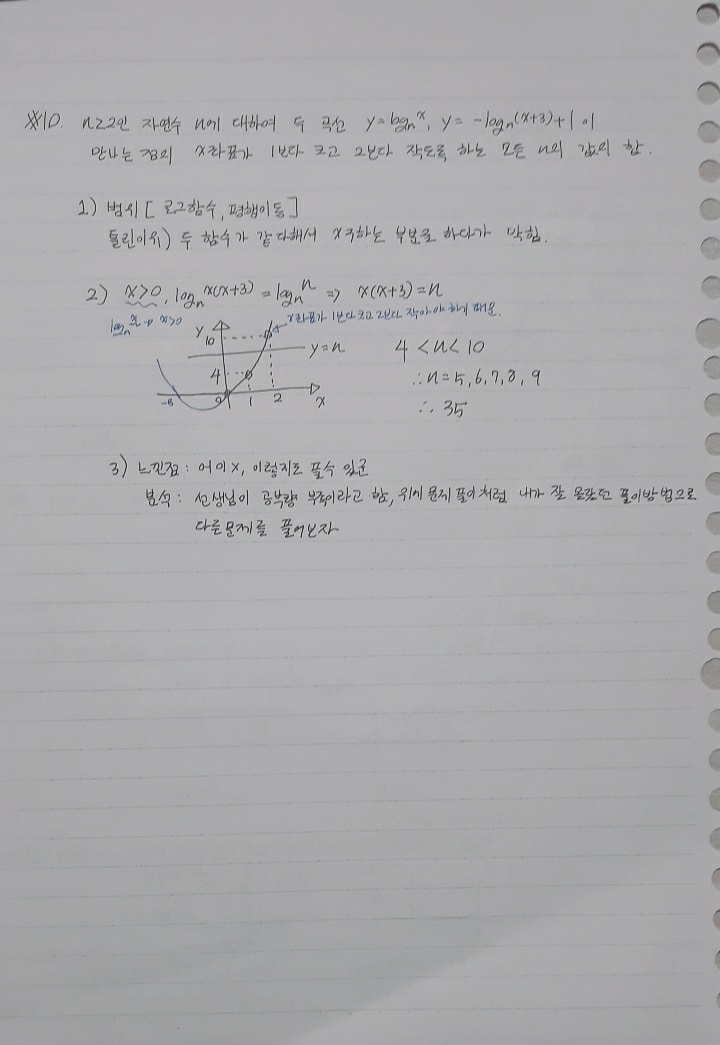 ※10. n≥2인 자연수 n에 대하여 두 곡선 y=logₙx, y=-logₙ(x+3)+1 이
만나는 점의 x좌표가 1보다 크고 2보다 작도록 하는 모든 n의 값의 합.
1) 범위 [로그함수, 평행이동]
틀린이유) 두 함수가 같다해서 x구하는 부분을 하다가 막힘.
2) x>0, logₙx(x+3) = logₙn ⇒ x(x+3)=n
logₙx → x>0
x좌표가 1보다 크고 2보다 작아야 하기 때문.
y
10
y=n
4
-3 0 1 2 x
4 < n < 10
∴ n=5, 6, 7, 8, 9
∴ 35
3) 느낀점 : 어이x, 이렇게도 풀수 있군
분석 : 선생님이 공부량 부족이라고 함, 위에 문제 풀이처럼 내가 잘 몰랐던 풀이방법으로
다른문제를 풀어보자